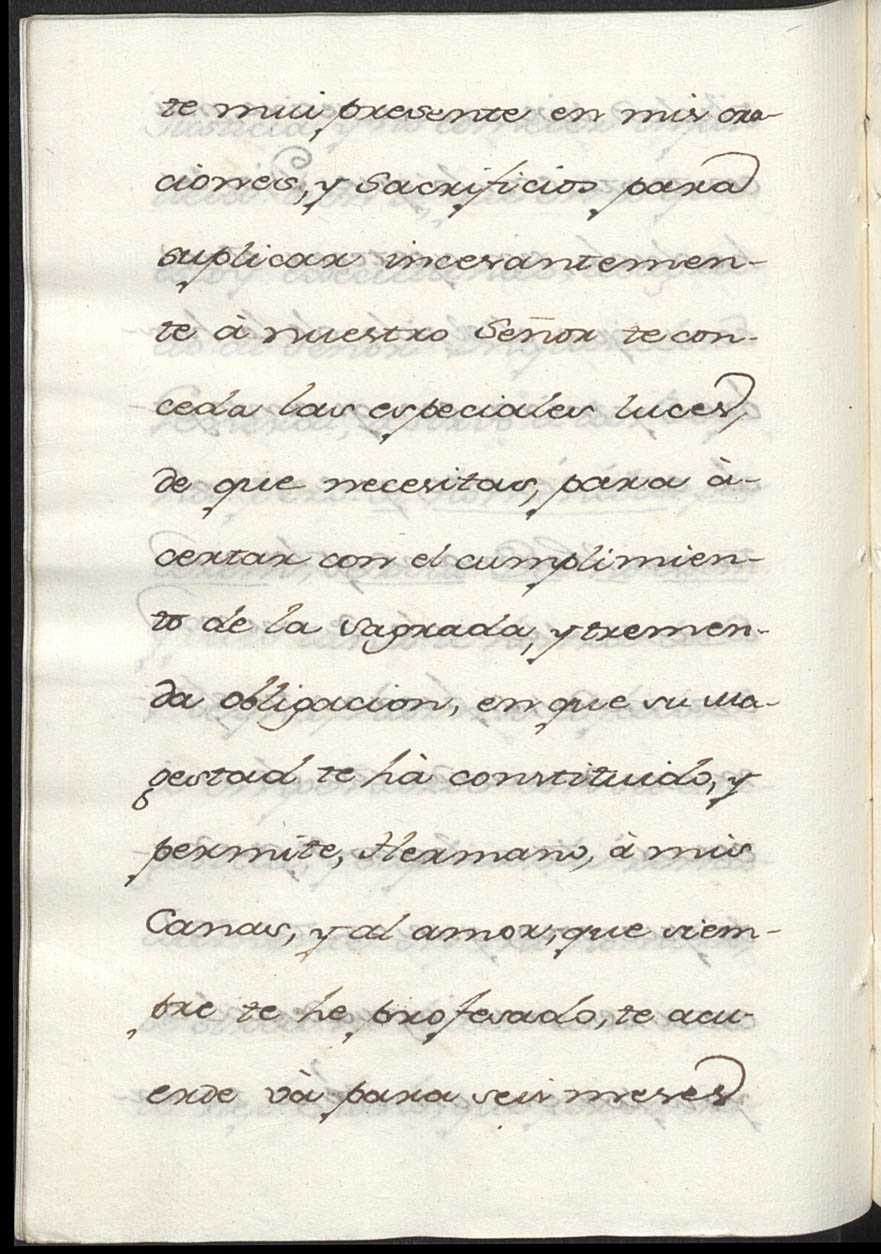 te mui presente en mis ora-
ciones, y Sacrificios para
suplicar incesantemen-
te à nuestro Señor te con-
ceda las especiales luces,
de que necesitas, para à-
certar con el cumplimien-
to de la sagrada, y tremen-
da obligacion, en que su Ma-
gestad te hà constituido, y
permite, Hermano, à mis
Canas, y al amor, que siem-
pre te he profesado, te acu-
erde và para seis meses